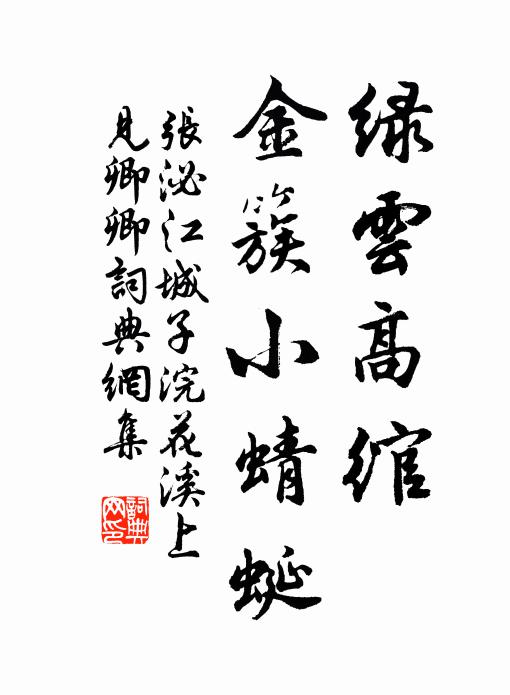 綠雲高綰
金簇小蜻蜒
張泌江城子浣花溪上
見卿卿詞典網集
詞典
网印